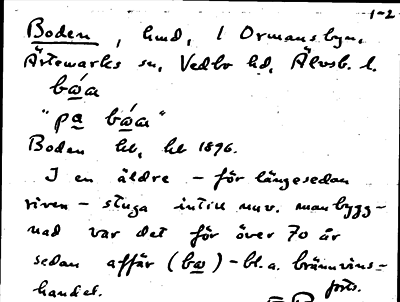 1-2
Boden, hmd, 1 Ormansbyn,
Ärtemarks sn, Vedbo hd, Älvsb. l.
bώa
"pa bώa"
Boden hl, hl 1896.
I en äldre – för längesedan
riven – stuga intill nuv. manbygg-
nad var det för över 70 år
sedan affär (bω) – bl.a. brännvins-
handel. forts.